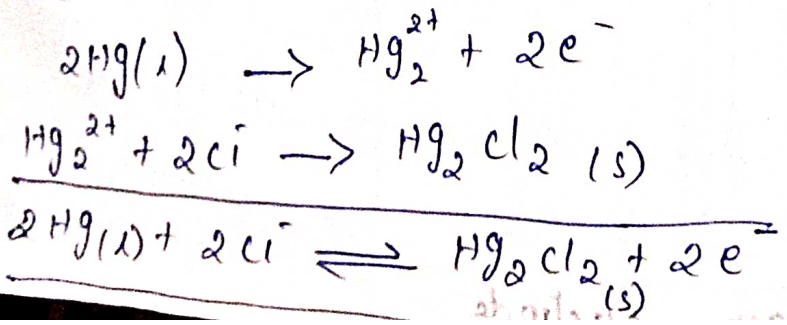 2Hg(l) → Hg₂²⁺ + 2e⁻
Hg₂²⁺ + 2Cl⁻ → Hg₂Cl₂ (s)
2Hg(l) + 2Cl⁻ ⇌ Hg₂Cl₂(s) + 2e⁻